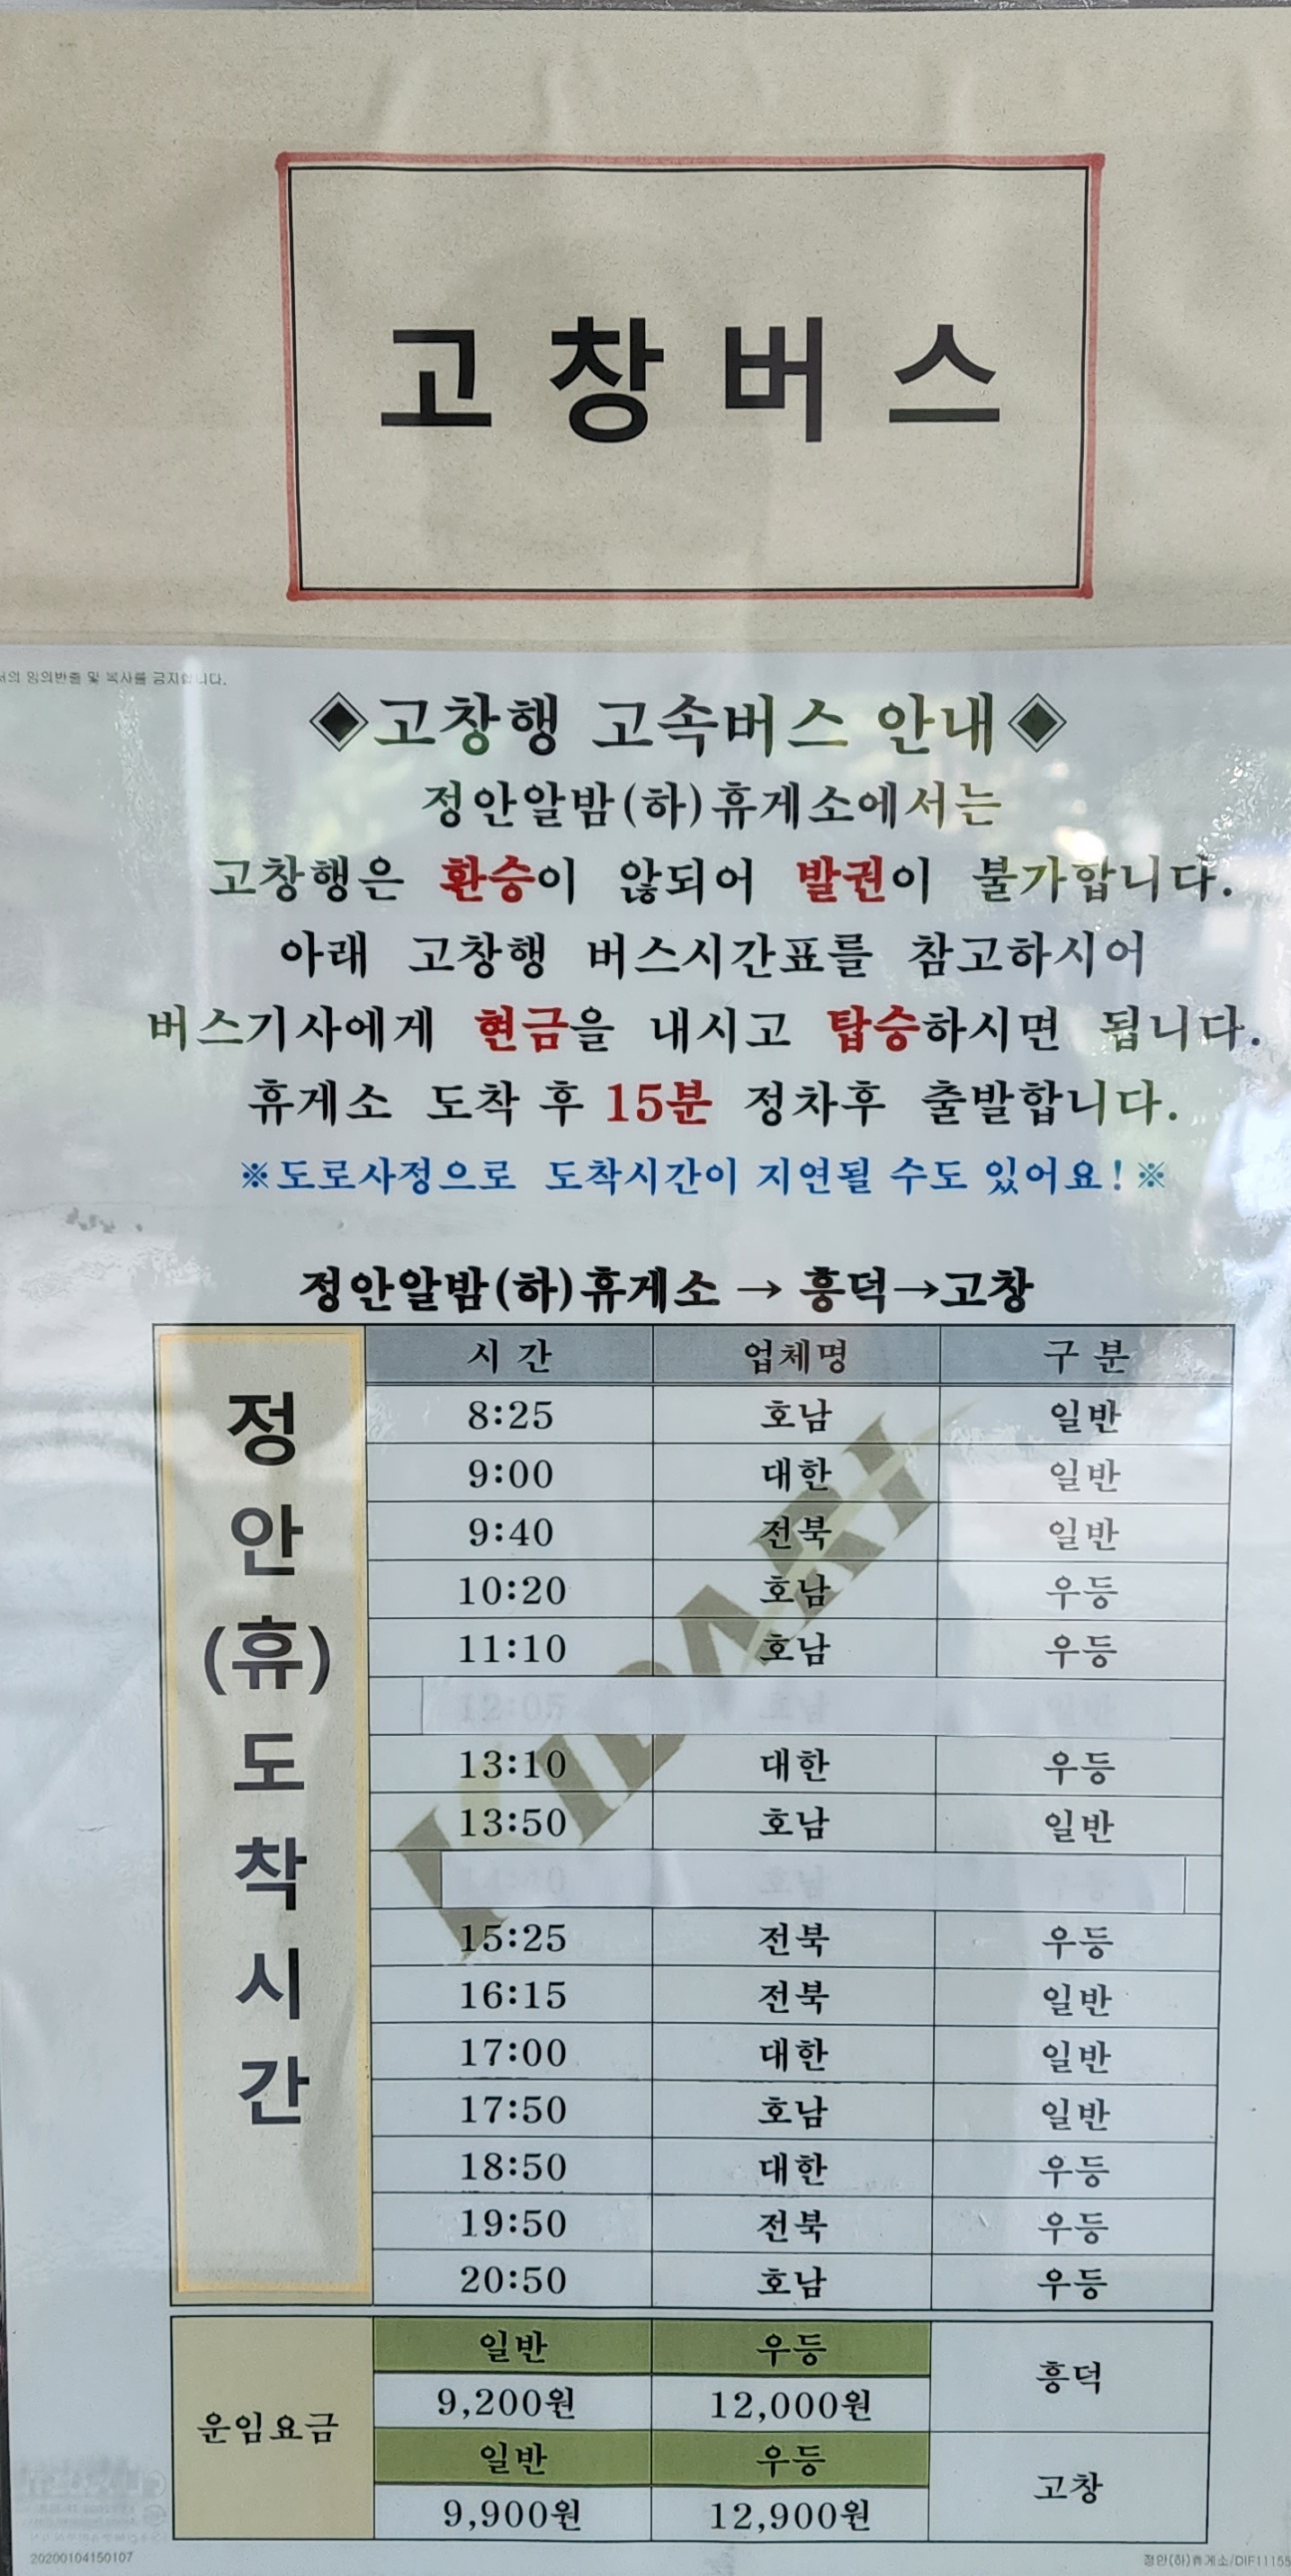 고창버스
임의반출 및 복사를 금지합니다.
◈고창행 고속버스 안내◈
정안알밤(하)휴게소에서는
고창행은 환승이 않되어 발권이 불가합니다.
아래 고창행 버스시간표를 참고하시어
버스기사에게 현금을 내시고 탑승하시면 됩니다.
휴게소 도착 후 15분 정차후 출발합니다.
※도로사정으로 도착시간이 지연될 수도 있어요!※
정안알밤(하)휴게소 → 흥덕→고창
정안(휴)도착시간
시 간 업체명 구 분
8:25 호남 일반
9:00 대한 일반
9:40 전북 일반
10:20 호남 우등
11:10 호남 우등
12:05 호남 일반
13:10 대한 우등
13:50 호남 일반
호남 우등
15:25 전북 우등
16:15 전북 일반
17:00 대한 일반
17:50 호남 일반
18:50 대한 우등
19:50 전북 우등
20:50 호남 우등
KIDARI
운임요금
일반 우등 흥덕
9,200원 12,000원
일반 우등 고창
9,900원 12,900원
20200104150107
정안(하)휴게소/DIF11155